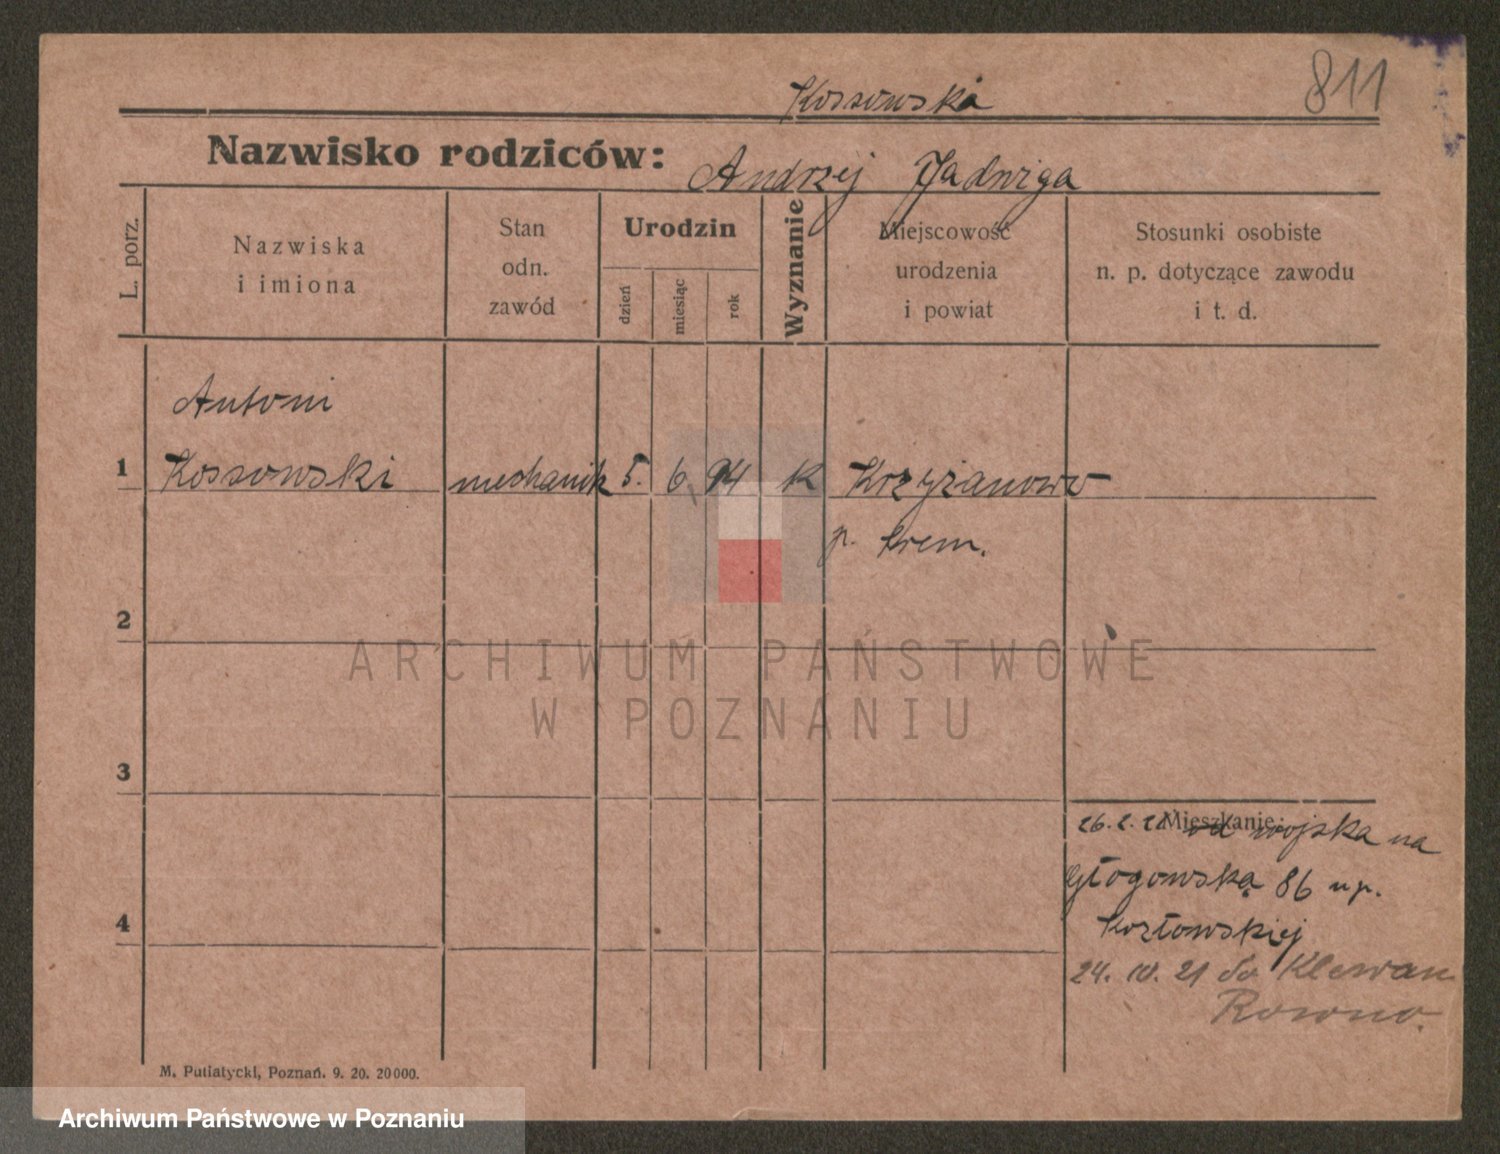 811
Kossowska
Nazwisko rodziców: Andrzej Jadwiga
L. porz.
Nazwiska
i imiona
Stan
odn.
zawód
Urodzin
dzień
miesiąc
rok
Wyznanie
Miejscowość
urodzenia
i powiat
Stosunki osobiste
n. p. dotyczące zawodu
i t. d.
Antoni
1 Kossowski mechanik 5. 6. 94 K Krzyżanowo
p. Śrem.
2
ARCHIWUM PAŃSTWOWE
W POZNANIU
3
Mieszkanie:
26. 2. 21 od wojska na
Głogowską 86 u p.
4
Kozłowskiej
24. 10. 21 do Klewan
Rowno.
M. Putiatycki, Poznań. 9. 20. 20000.
Archiwum Państwowe w Poznaniu